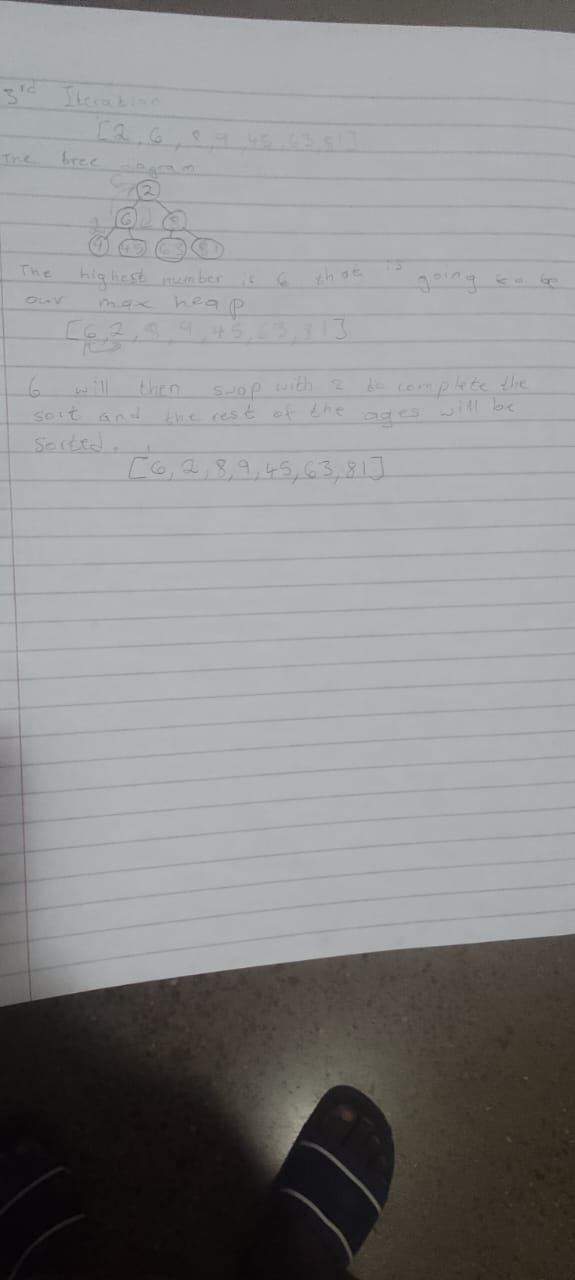 3rd Iteration
[2, 6, 8, 9, 45, 63, 81]
The tree diagram
2
6 8
9 45 63 81
The highest number is 6 that is going to be
our max heap
[6, 2, 8, 9, 45, 63, 81]
6 will then swap with 2 to complete the
sort and the rest of the ages will be
sorted.
[6, 2, 8, 9, 45, 63, 81]